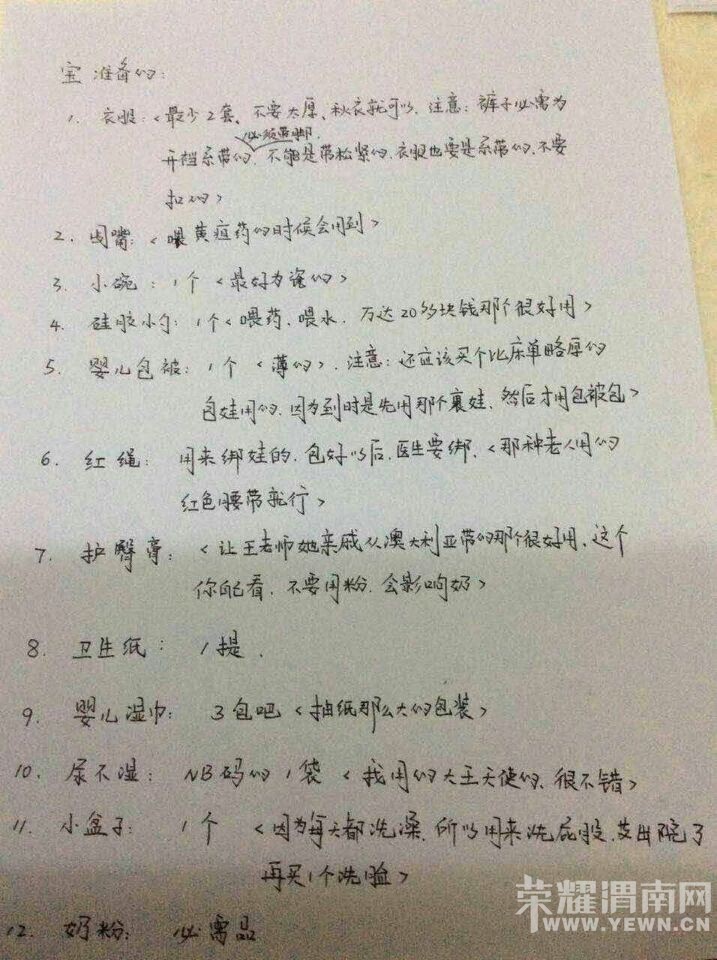 宝准备的:
1. 衣服:<最少2套、不要太厚、秋衣就可以,注意:裤子必需为
必须带脚
开档系带的,不能是带松紧的,衣服也要是系带的,不要
扣的>
2. 奶嘴:<喂黄疸药的时候会用到>
3. 小碗:1个<最好为瓷的>
4. 硅胶小勺:1个<喂药、喂水,万达20多块钱那个很好用>
5. 婴儿包被:1个<薄的>,注意:还应该买个比床单略厚的
包娃用的,因为到时是先用那个裹娃,然后才用包被包>
6. 红绳:用来绑娃的,包好以后,医生要绑,<那种老人用的
红色腰带就行>
7. 护臀膏:<让王老师她亲戚从澳大利亚带的那个很好用,这个
你自己看,不要用粉,会影响奶>
8. 卫生纸:1提.
9. 婴儿湿巾:3包吧<抽纸那么大的包装>
10. 尿不湿:NB码的1袋<我用的大王天使的,很不错>
11. 小盆子:1个<因为每天都洗澡,所以用来洗屁股,等出院了
再买1个洗脸>
12. 奶粉:必需品
荣耀渭南网
WWW.YEWN.CN